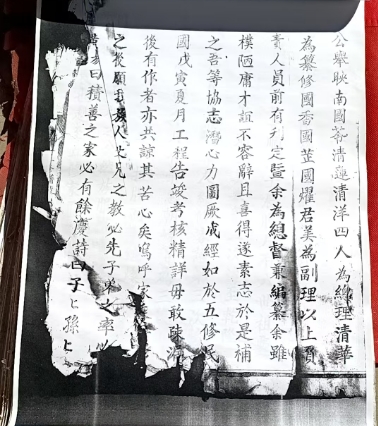 公舉映南國苓清蓮清洋四人為總理清華
為纂修國香國莖國燿君美為副理以上負
責人員前有刋定曁余為總督兼編纂余雖
樸陋庸才誼不容辭且喜得遂素志於是補
之吾等協志濳心力圖厥成經始於五修民
國戊寅夏月工程告竣考核精詳毋敢疎
後有作者亦共諒其苦心矣嗚呼家
之從願我族人父兄之教必先子弟之率
易曰積善之家必有餘慶詩曰子〻孫〻